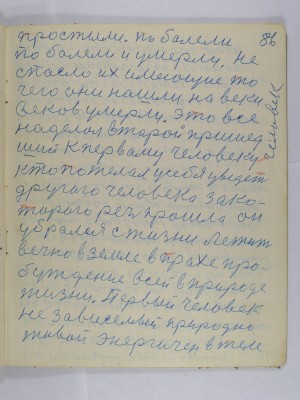 простыли. по болели 86
по болели и умерли. не
спасло их имеющие то
чего они нашли на веки
веков умерли. Это все
наделал второй пришед
ший к первому человеку человек
кто пожелал у себя увидеть
другого человека За ко-
торого рез прошла он
убрался с жизни лежит
вечно в земле в прахе про-
буждение всей в природе
жизни. Первый человек
не зависемый природно
живой энергичен в теле